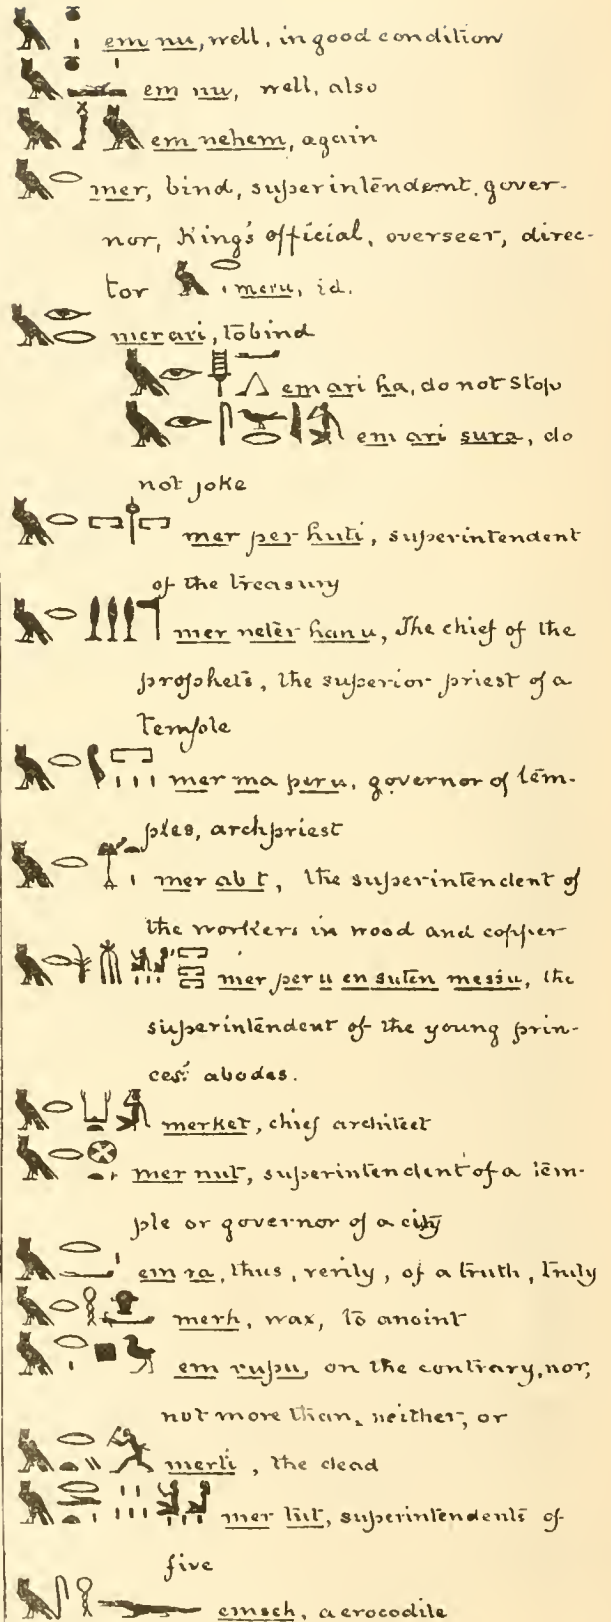 em nu, well, in good condition
em nu, well, also
em nehem, again
mer, bind, superintendent, gover-
nor, King's official, overseer, direc-
tor meru, id.
mer ari, to bind
em ari ha, do not stop
em ari sura, do
not joke
mer per huti, superintendent
of the treasury
mer neter hanu, The chief of the
prophets, the superior priest of a
temple
mer ma peru, governor of tem-
ples, archpriest
mer ab t, the superintendent of
the workers in wood and copper
mer per u en suten messu, the
superintendent of the young prin-
ces' abodes.
merket, chief architect
mer nut, superintendent of a tem-
ple or governor of a city
em ra, thus, verily, of a truth, truly
merh, wax, to anoint
em rupu, on the contrary, nor,
not more than, neither, or
merti, the dead
mer tut, superintendents of
five
emseh, a crocodile